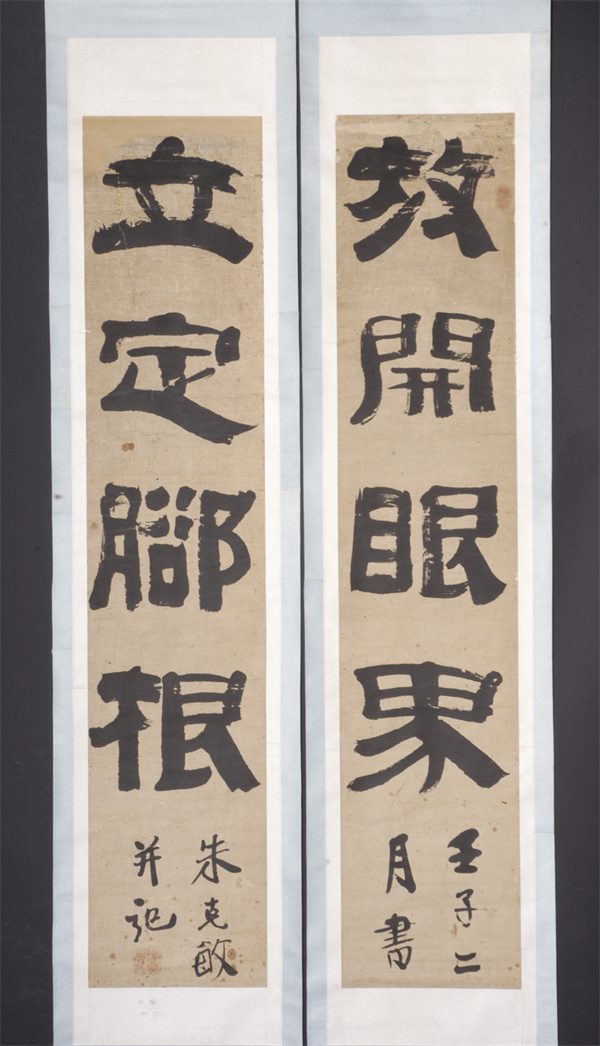 放開眼界
壬子二
月書
立定腳根
朱克敏
并記